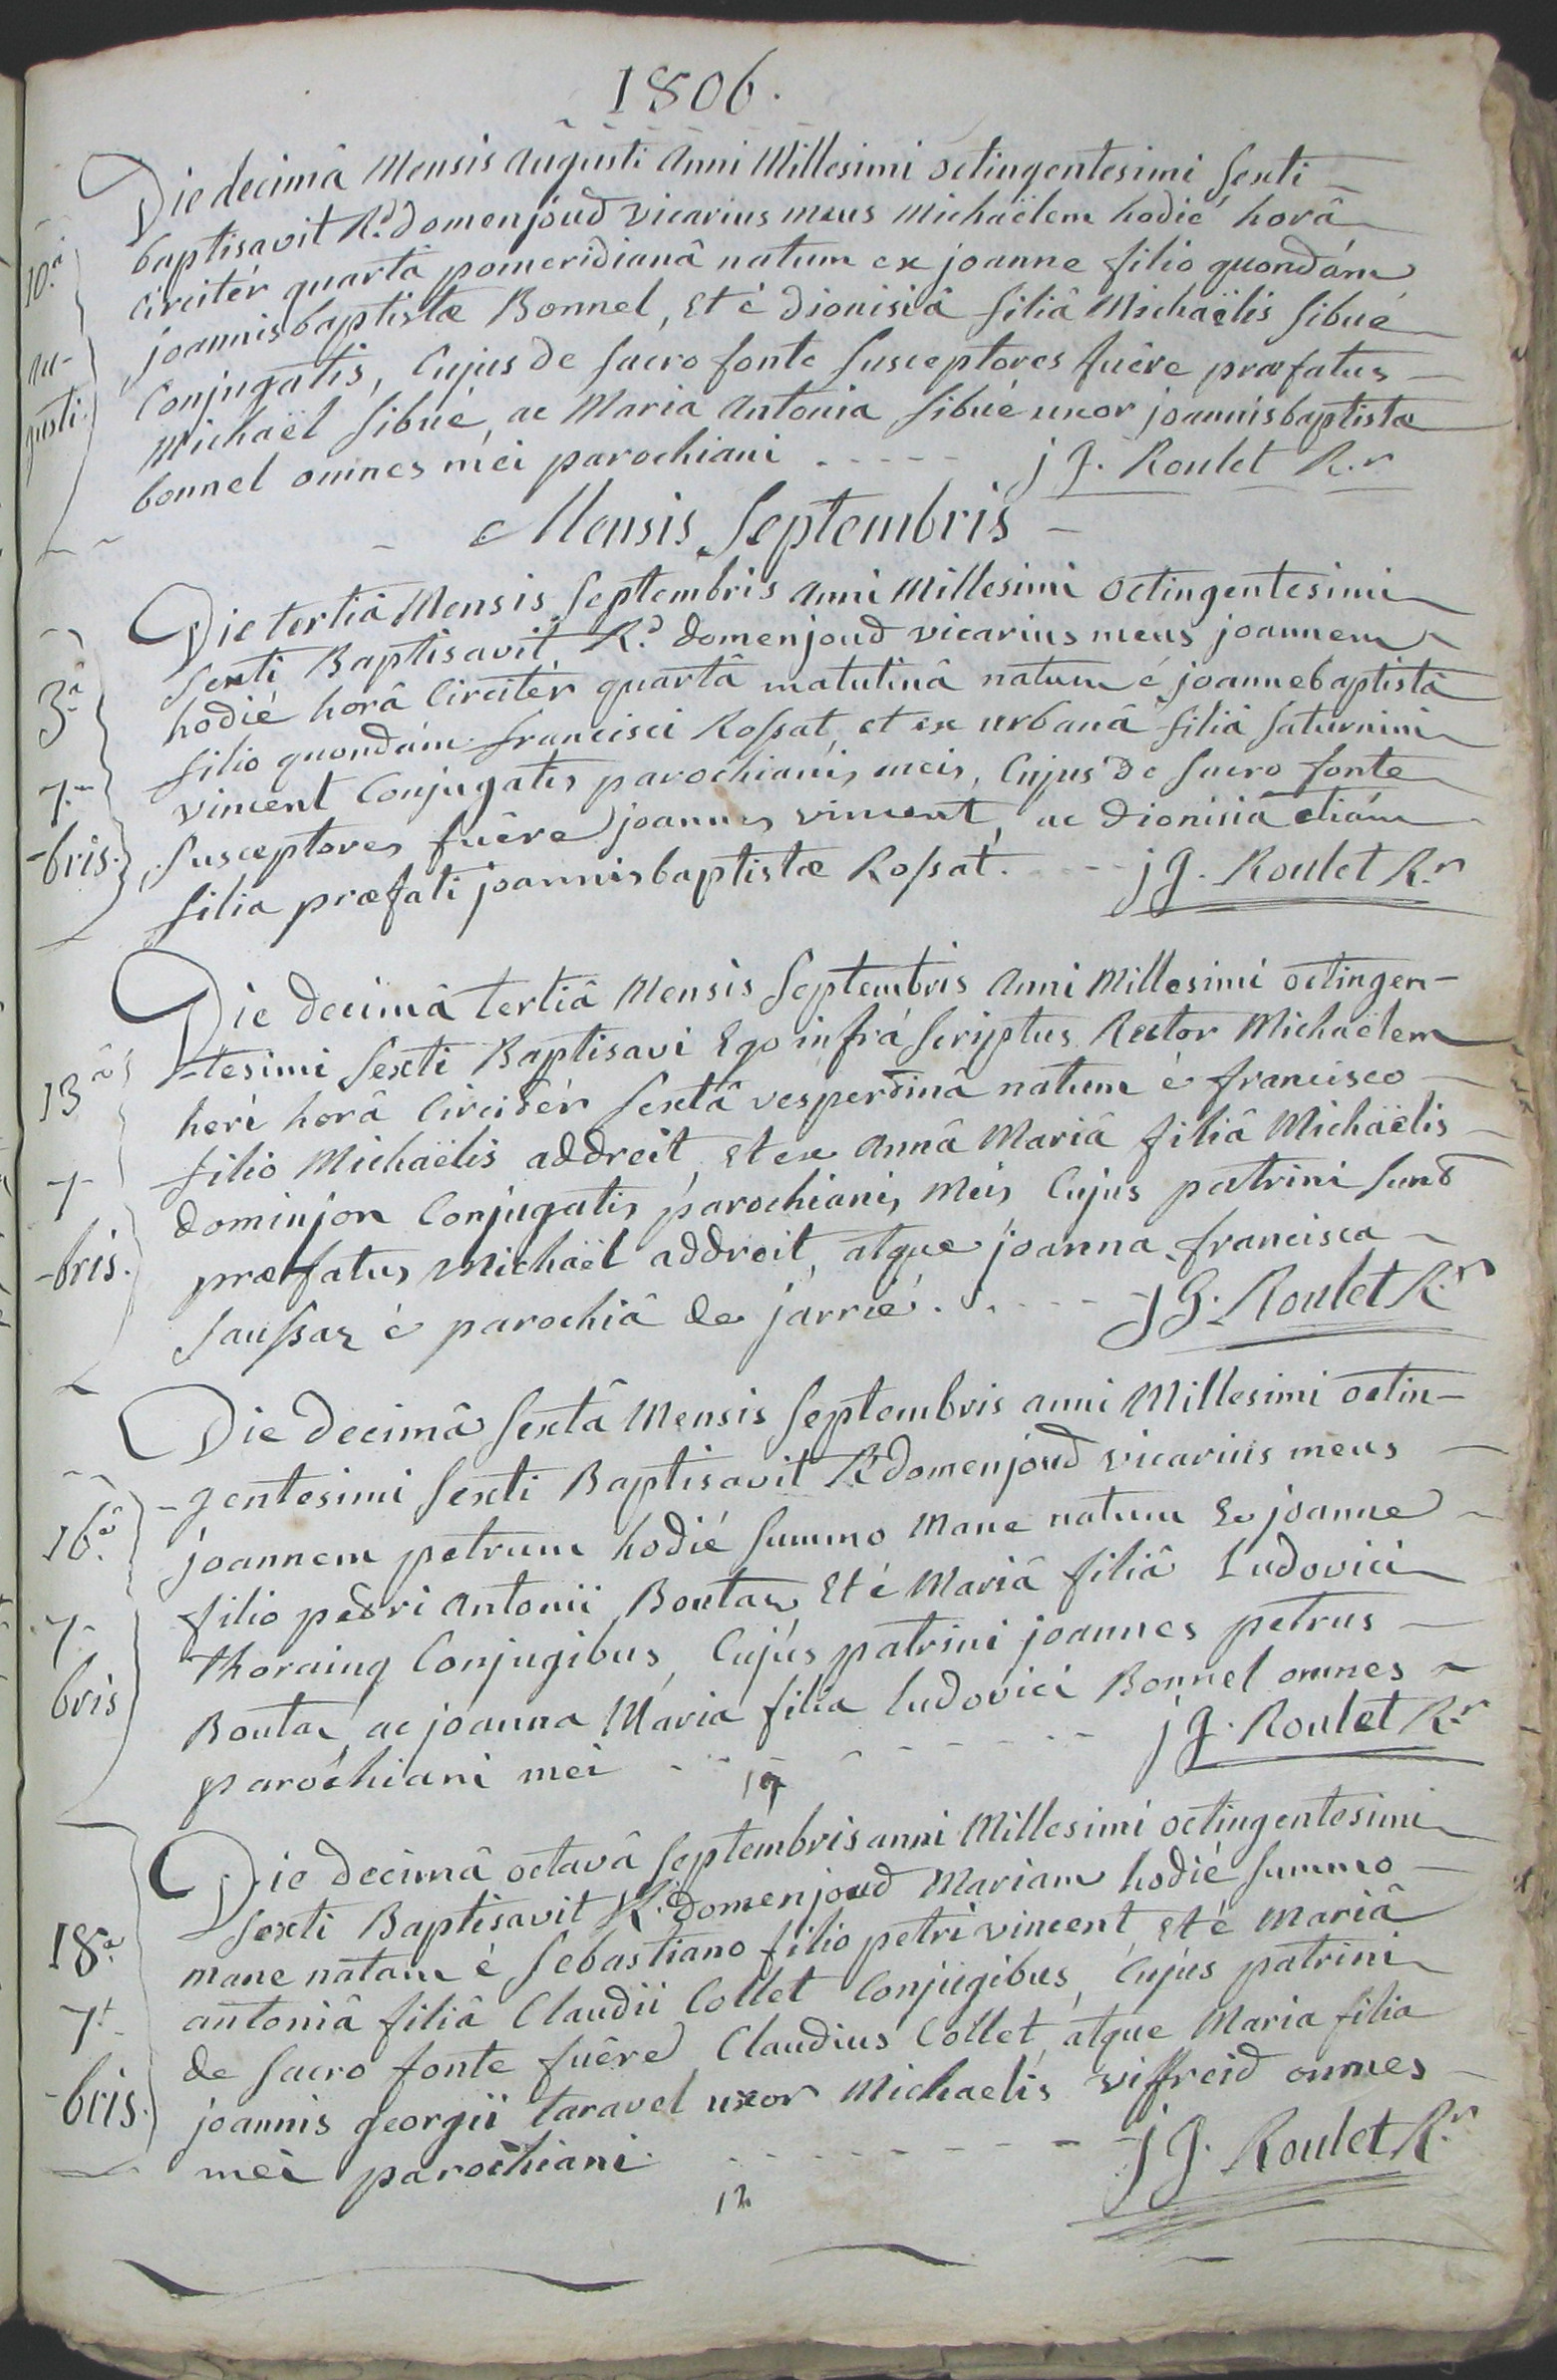 1806.
Die decimâ Mensis Augusti Anni Millesimi octingentesimi sexti
baptisavit R.d domenjoud vicarius meus michaëlem hodié horâ
10.a
circitér quartâ pomeridianâ natum ex joanne filio quondám
joannisbaptistæ Bonnel, Et é dionisiâ filiâ Michaëlis sibué
au-
Conjugatis, Cujus de sacro fonte susceptores fuêre præfatus
gusti.
Michaël sibué, ac Maria Antonia sibué uxor joannisbaptistæ
bonnel omnes mei parochiani - - - - - j g. Roulet R.r
Mensis Septembris
Die tertiâ Mensis Septembris Anni Millesimi octingentesimi
sexti Baptisavit R.d domenjoud vicarius meus joannem
3.a
hodié horâ Circitér quartâ matutinâ natum é joannebaptistâ
filio quondám francisci Rossat, et ex urbanâ filiâ saturnini
7.
vincent Conjugatis parochianis meis, Cujus de sacro fonte
-bris.
susceptores fuêre joannes vincent, ac dionisia etiám
filia præfati joannisbaptistæ Rossat. - - - j g. Roulet R.r
Die decimâ tertiâ Mensis Septembris Anni Millesimi octingen-
-tesimi sexti Baptisavi Ego infrá scriptus Rector Michaëlem
13.a
heri horâ Circitér sextâ vespertinâ natum é francisco
filio Michaëlis addreit, et ex Annâ Mariâ filiâ Michaëlis
7-
dominjon Conjugatis parochianis Meis Cujus patrini sunt
-bris.
præfatus Michaël addreit, atque joanna francisca
saussaz é parochiâ de jarrié. - - - - - j G. Roulet R.r
Die decimâ sextâ Mensis Septembris anni Millesimi octin-
-gentesimi sexti Baptisavit R.d domenjoud vicarius meus
16.a
joannem petrum hodié summo Mane natum Ex joanne
filio petri Antonii Boutaz, Et é Mariâ filiâ Ludovici
7-
Thoraing Conjugibus, Cujus patrini joannes petrus
bris
Boutaz, ac joanna Maria filia ludovici Bonnel omnes
parochiani mei - - - - - - - - j g. Roulet R.r
Die decimâ octavâ Septembris anni Millesimi octingentesimi
sexti Baptisavit R.d domenjoud Mariam hodié summo
18.a
mane natam é Sebastiano filio petri vincent, Et é Mariâ
7-
antoniâ filiâ Claudii Collet Conjugibus, Cujus patrini
de sacro fonte fuêre Claudius Collet, atque Maria filia
-bris.
joannis georgii taravel uxor Michaelis viffreid omnes
mei parochiani. - - - - - - - - j g. Roulet R.r
12